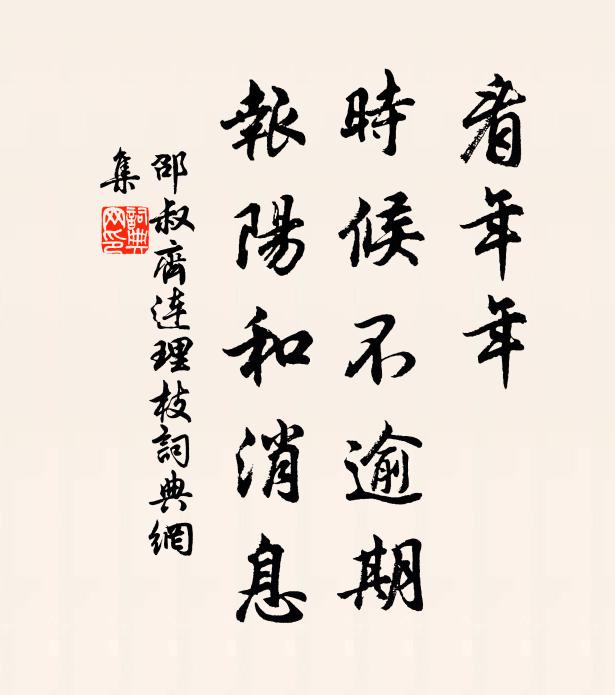 看年年
時候不逾期
報陽和消息
邵叔齊連理枝詞典網
集
詞典网印